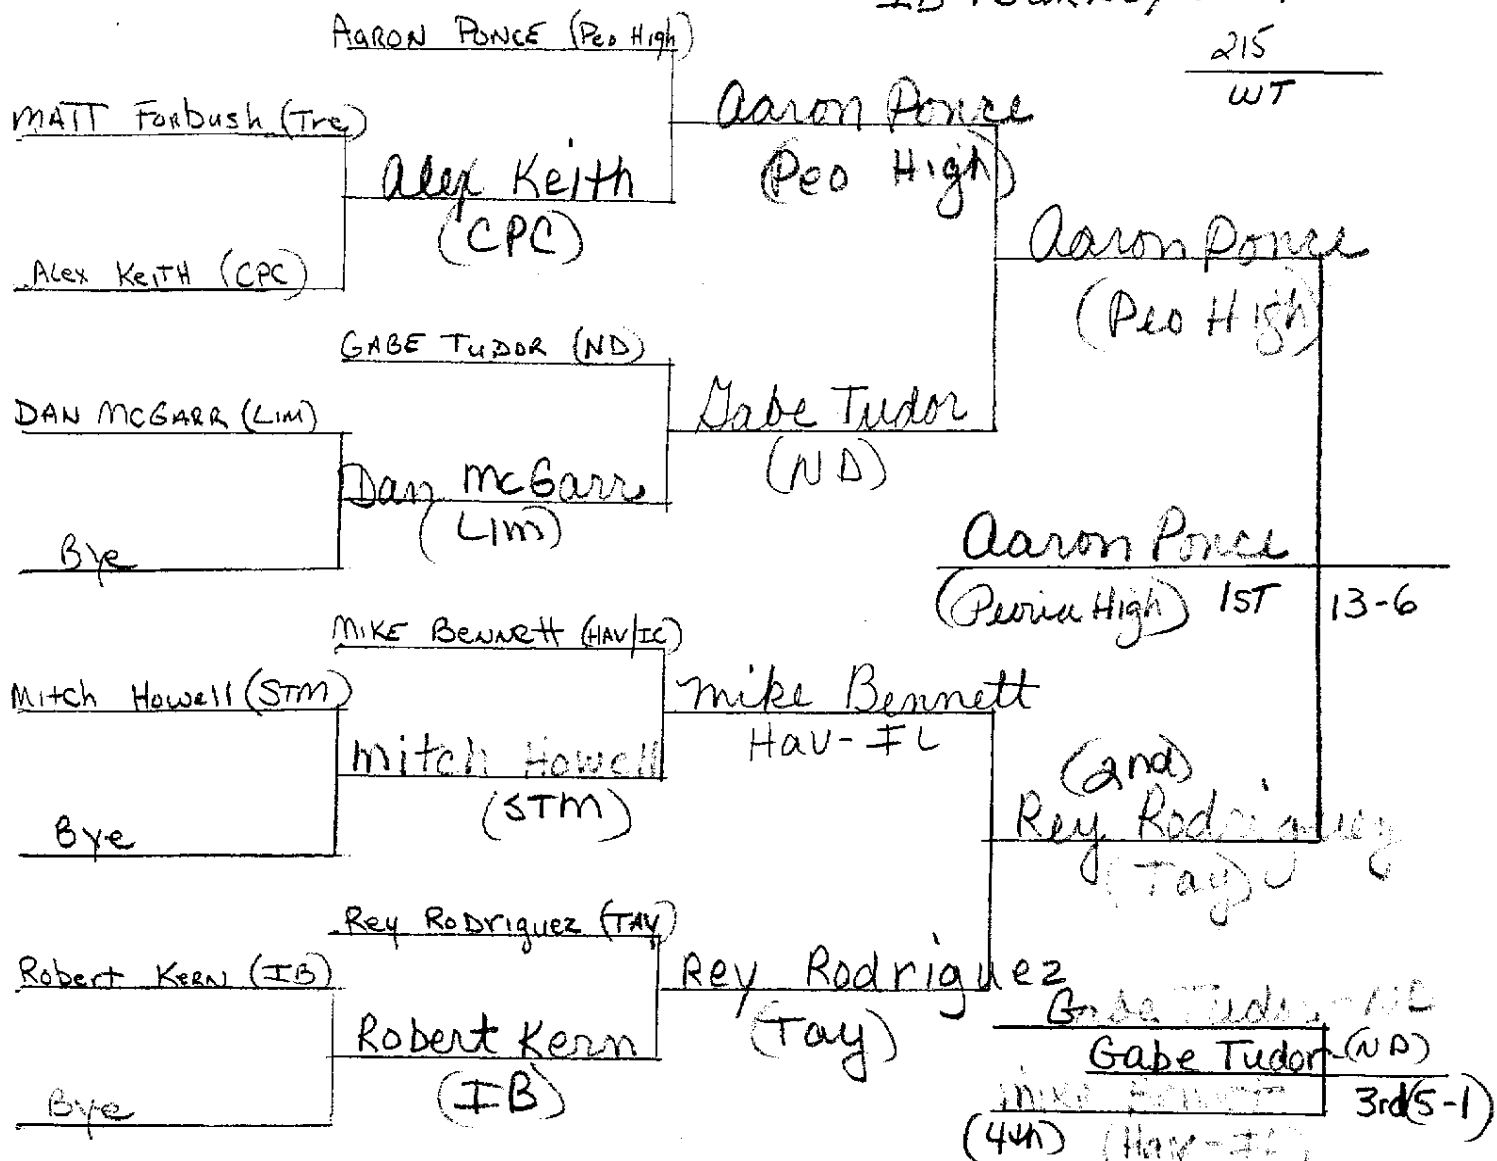 215
WT
AARON PONCE (Peo High)
MATT Forbush (Tre)
Alex Keith
(CPC)
Alex KeITH (CPC)
Aaron Ponce
(Peo High)
GABE TUDOR (ND)
DAN MCGARR (LIM)
Dan McGarr
(LIM)
Bye
Gabe Tudor
(ND)
Aaron Ponce
(Peo High)
Aaron Ponce
(Peoria High) 1ST 13-6
MIKE BENNETT (HAV/IC)
Mitch Howell (STM)
Mitch Howell
(STM)
Bye
Mike Bennett
Hav-IL
Rey RoDriguez (TAY)
Robert KERN (IB)
Robert Kern
(IB)
Bye
Rey Rodriguez
(Tay)
(2nd)
Rey Rodriguez
(Tay)
Gabe Tudor
Gabe Tudor (ND)
3rd (5-1)
Mike Bennett
(4th) (Hav-IL)